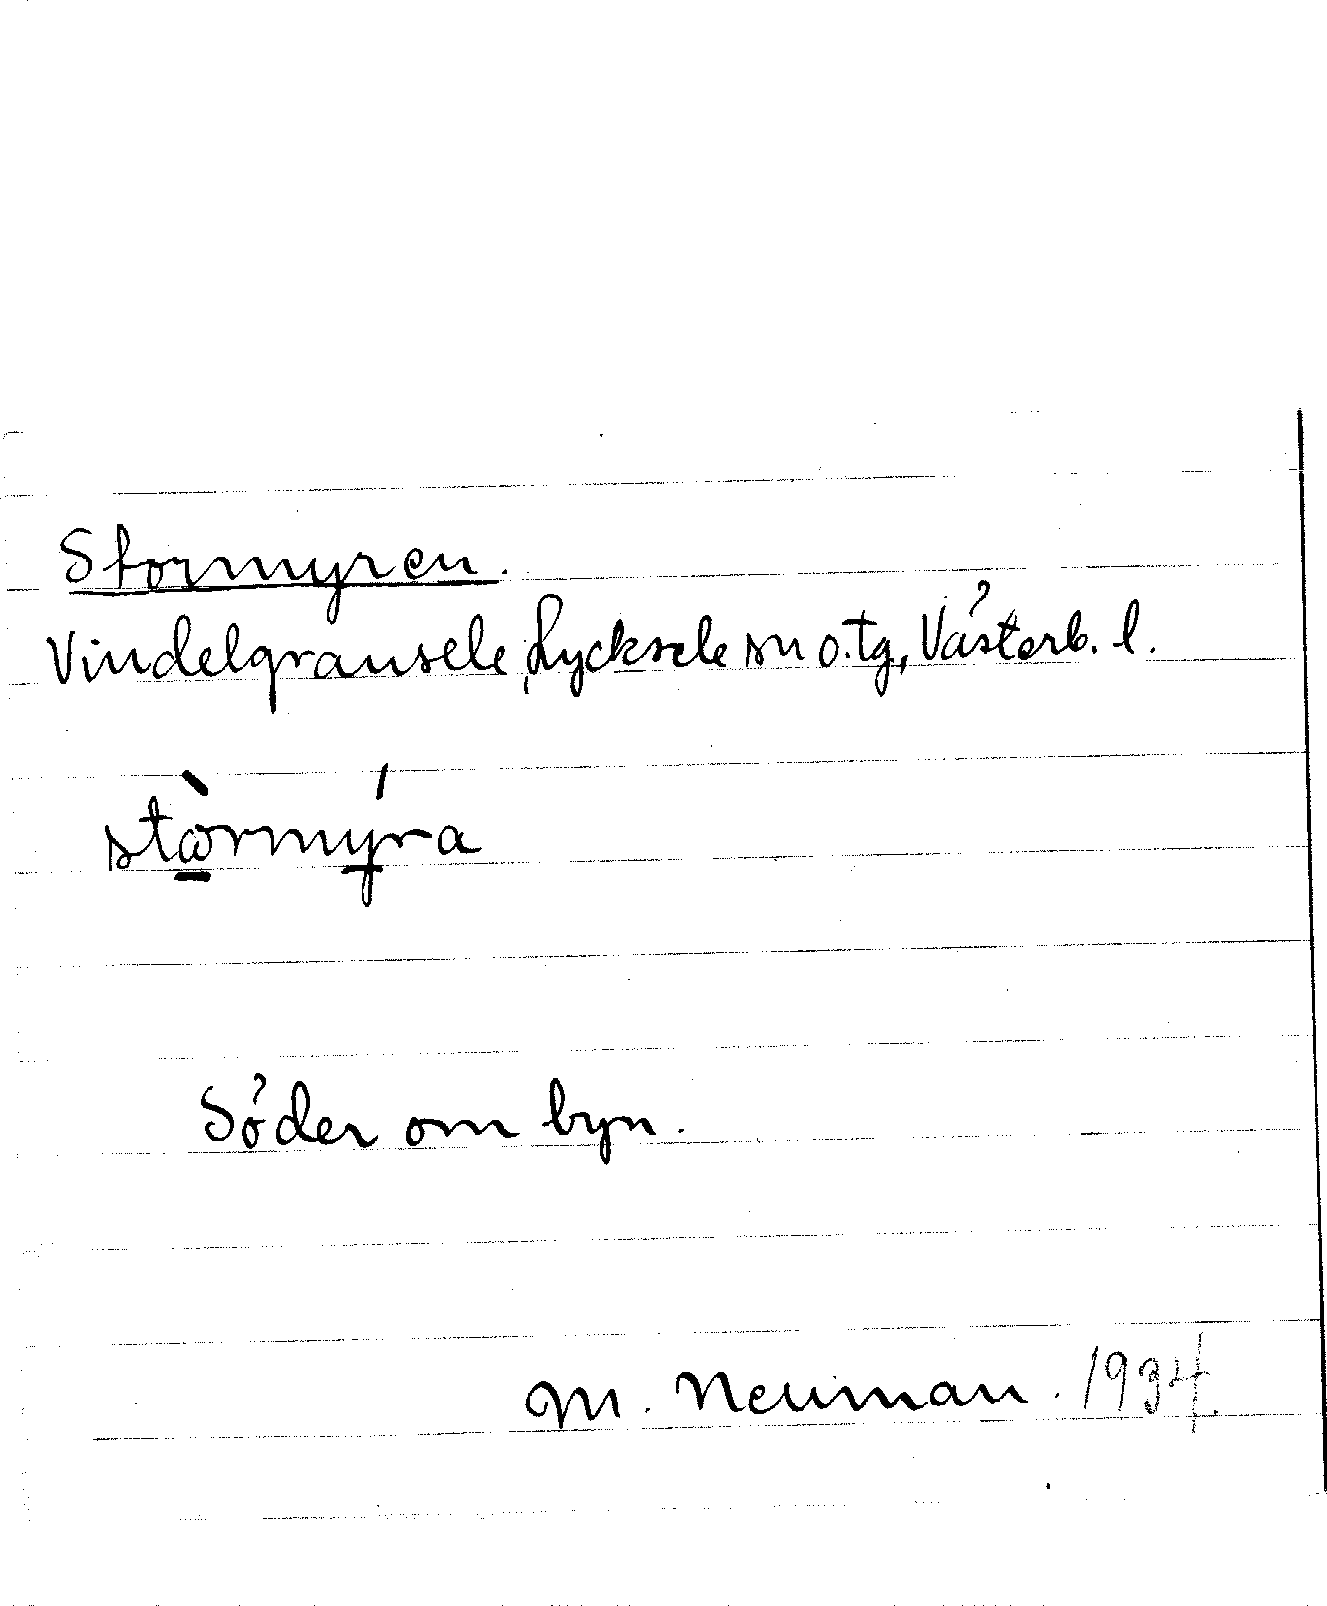 Stormyren.
Vindelgransele, Lycksele sn o. tg, Västerb. l.
stòrmýra
Söder om byn.
M. Neuman. 1934.